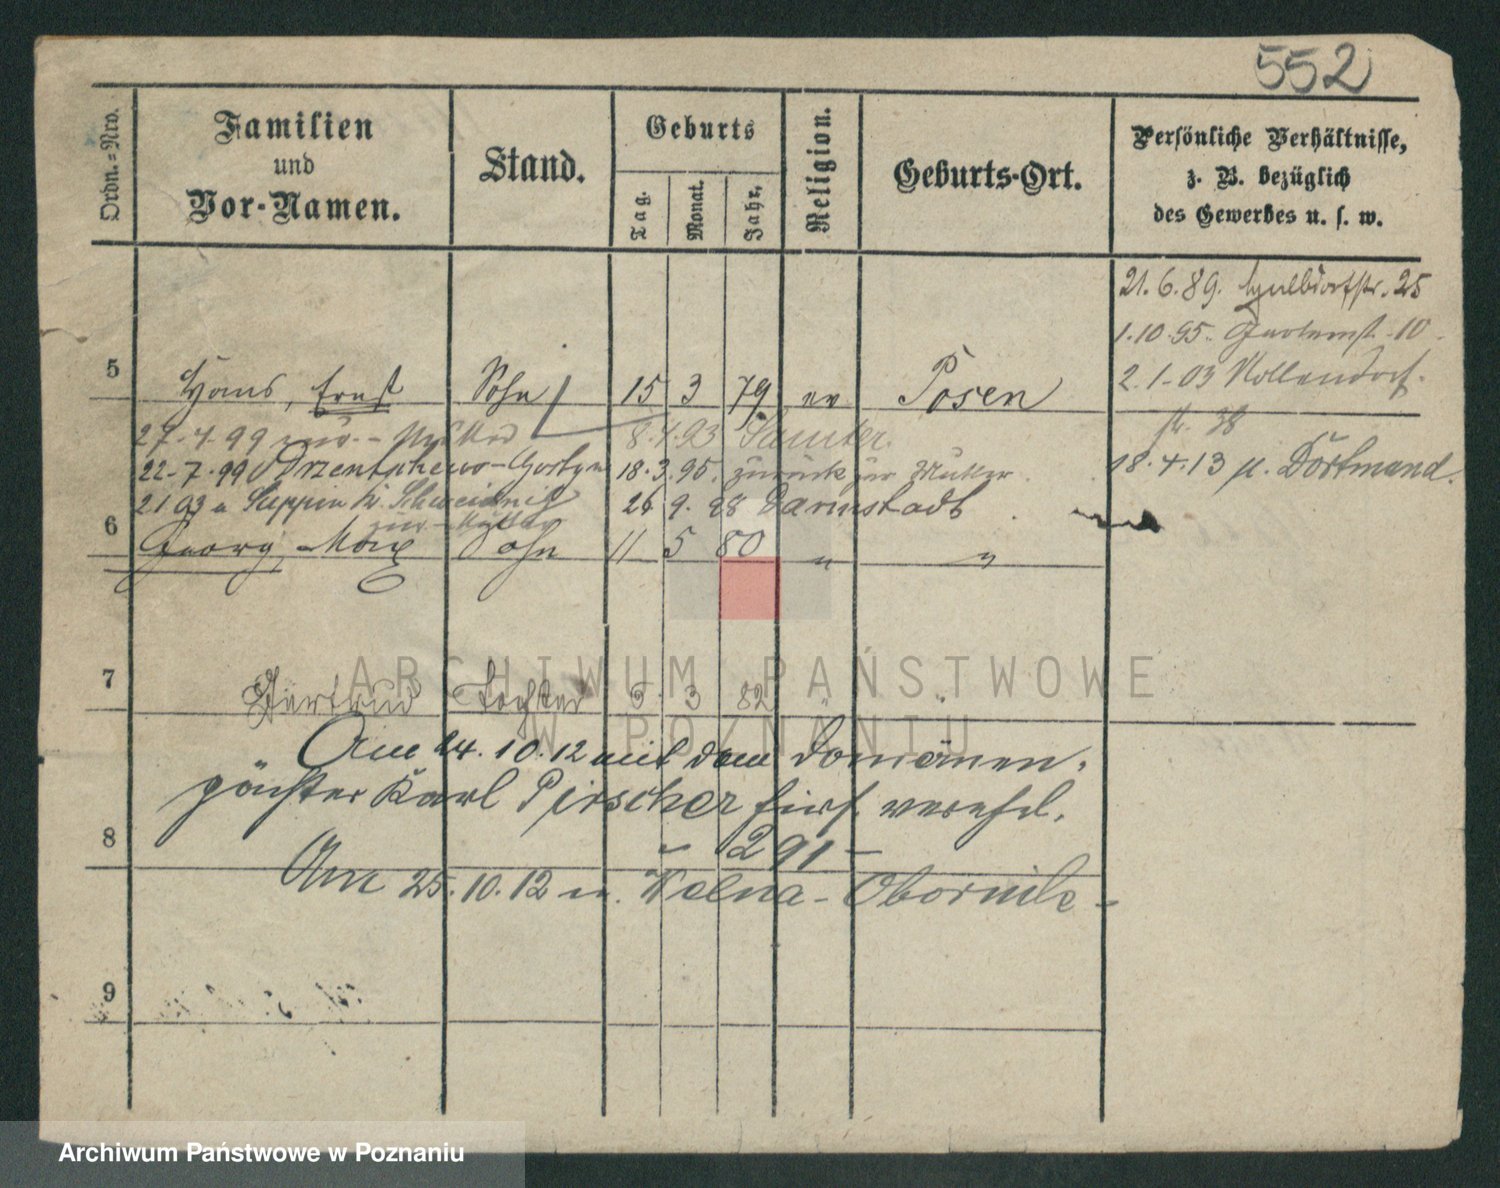 552
Ordn.=Nro.
Familien
und
Vor-Namen.
Stand.
Geburts
Tag.
Monat.
Jahr.
Religion.
Geburts-Ort.
Persönliche Verhältnisse,
z. B. bezüglich
des Gewerbes u. s. w.
21.6.89. 25
1.10.95. 10
2.1.03 Nollendorf-
str. 38
18.4.13 n. Dortmund.
5 Hans, Ernst Sohn 15 3 79 ev Posen
27.4.99 zur. 8.4.93 Samter.
22-7.99 Gostyn 18.3.95. zurück zur Mutter
2193 n 26.9.98 Darmstadt
zur Mutter
6 Georg, Max Sohn 11 5 80 " "
7 Gertrud Tochter 3 82 " "
Am 24.10.12 mit dem Domänen-
pächter Karl Pirscher hier verehel.
8 291
Am 25.10.12 n. Welna-Obornik
9
ARCHIWUM PAŃSTWOWE
W POZNANIU
Archiwum Państwowe w Poznaniu